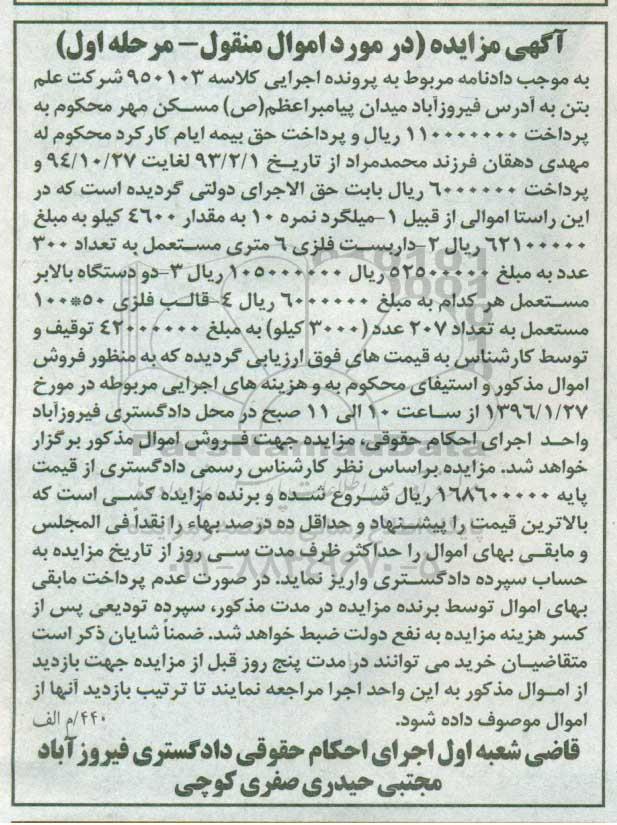 آگهی مزایده (در مورد اموال منقول- مرحله اول)
به موجب دادنامه مربوط به پرونده اجرایی کلاسه ۹۵۰۱۰۳ شرکت علم
بتن به آدرس فیروزآباد میدان پیامبراعظم(ص) مسکن مهر محکوم به
پرداخت ۱۱۰۰۰۰۰۰۰ ریال و پرداخت حق بیمه ایام کارکرد محکوم له
مهدی دهقان فرزند محمدمراد از تاریخ ۹۳/۲/۱ لغایت ۹۴/۱۰/۲۷ و
پرداخت ۶۰۰۰۰۰۰ ریال بابت حق الاجرای دولتی گردیده است که در
این راستا اموالی از قبیل ۱-میلگرد نمره ۱۰ به مقدار ۴۶۰۰ کیلو به مبلغ
۶۲۱۰۰۰۰۰ ریال ۲-داربست فلزی ۶ متری مستعمل به تعداد ۳۰۰
عدد به مبلغ ۵۲۵۰۰۰۰۰ ریال ۱۰۵۰۰۰۰۰۰۰ ریال ۳-دو دستگاه بالابر
مستعمل هر کدام به مبلغ ۶۰۰۰۰۰۰ ریال ۴-قالب فلزی ۵۰*۱۰۰
مستعمل به تعداد ۲۰۷ عدد (۳۰۰۰ کیلو) به مبلغ ۴۲۰۰۰۰۰۰ توقیف و
توسط کارشناس به قیمت های فوق ارزیابی گردیده که به منظور فروش
اموال مذکور و استیفای محکوم به و هزینه های اجرایی مربوطه در مورخ
۱۳۹۶/۱/۲۷ از ساعت ۱۰ الی ۱۱ صبح در محل دادگستری فیروزآباد
واحد اجرای احکام حقوقی، مزایده جهت فروش اموال مذکور برگزار
خواهد شد. مزایده براساس نظر کارشناس رسمی دادگستری از قیمت
پایه ۱۶۸۶۰۰۰۰۰ ریال شروع شده و برنده مزایده کسی است که
بالاترین قیمت را پیشنهاد و حداقل ده درصد بهاء را نقداً فی المجلس
و مابقی بهای اموال را حداکثر ظرف مدت سی روز از تاریخ مزایده به
حساب سپرده دادگستری واریز نماید. در صورت عدم پرداخت مابقی
بهای اموال توسط برنده مزایده در مدت مذکور، سپرده تودیعی پس از
کسر هزینه مزایده به نفع دولت ضبط خواهد شد. ضمناً شایان ذکر است
متقاضیان خرید می توانند در مدت پنج روز قبل از مزایده جهت بازدید
از اموال مذکور به این واحد اجرا مراجعه نمایند تا ترتیب بازدید آنها از
اموال موصوف داده شود.
۴۴۰/م الف
قاضی شعبه اول اجرای احکام حقوقی دادگستری فیروزآباد
مجتبی حیدری صفری کوچی
ParsNamadData
۰۲۱-۸۸۳۴۹۶۷۰-۵